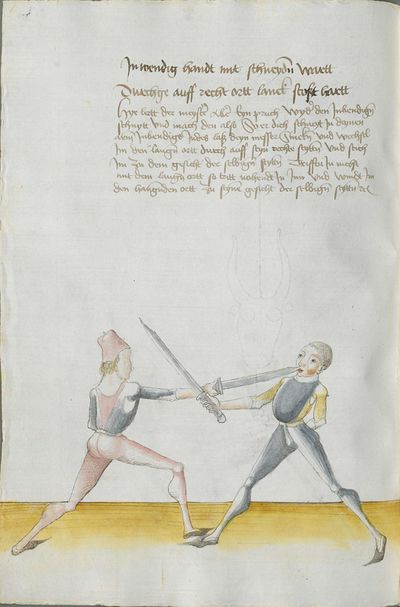 Inwendig handt mit schneyden wartt
Durchge auff recht ortt lanck stoss hartt
Hye hatt der meyster aber ein pruch wyder den Inbendigen
schnytt und mach den also So er dich schneyt In deynen
arm Inbendigs Indes laß deyn messer sincken und wechsel
Im den langen ortt durch auff seyn rechte seytten und stich
Im zu dem gesicht der selbigen seytten
mit dem langen ortt so tritt nohendt zu Im und windt Im
den hangenden ortt zu seyne gesicht der selbigen seytten etc